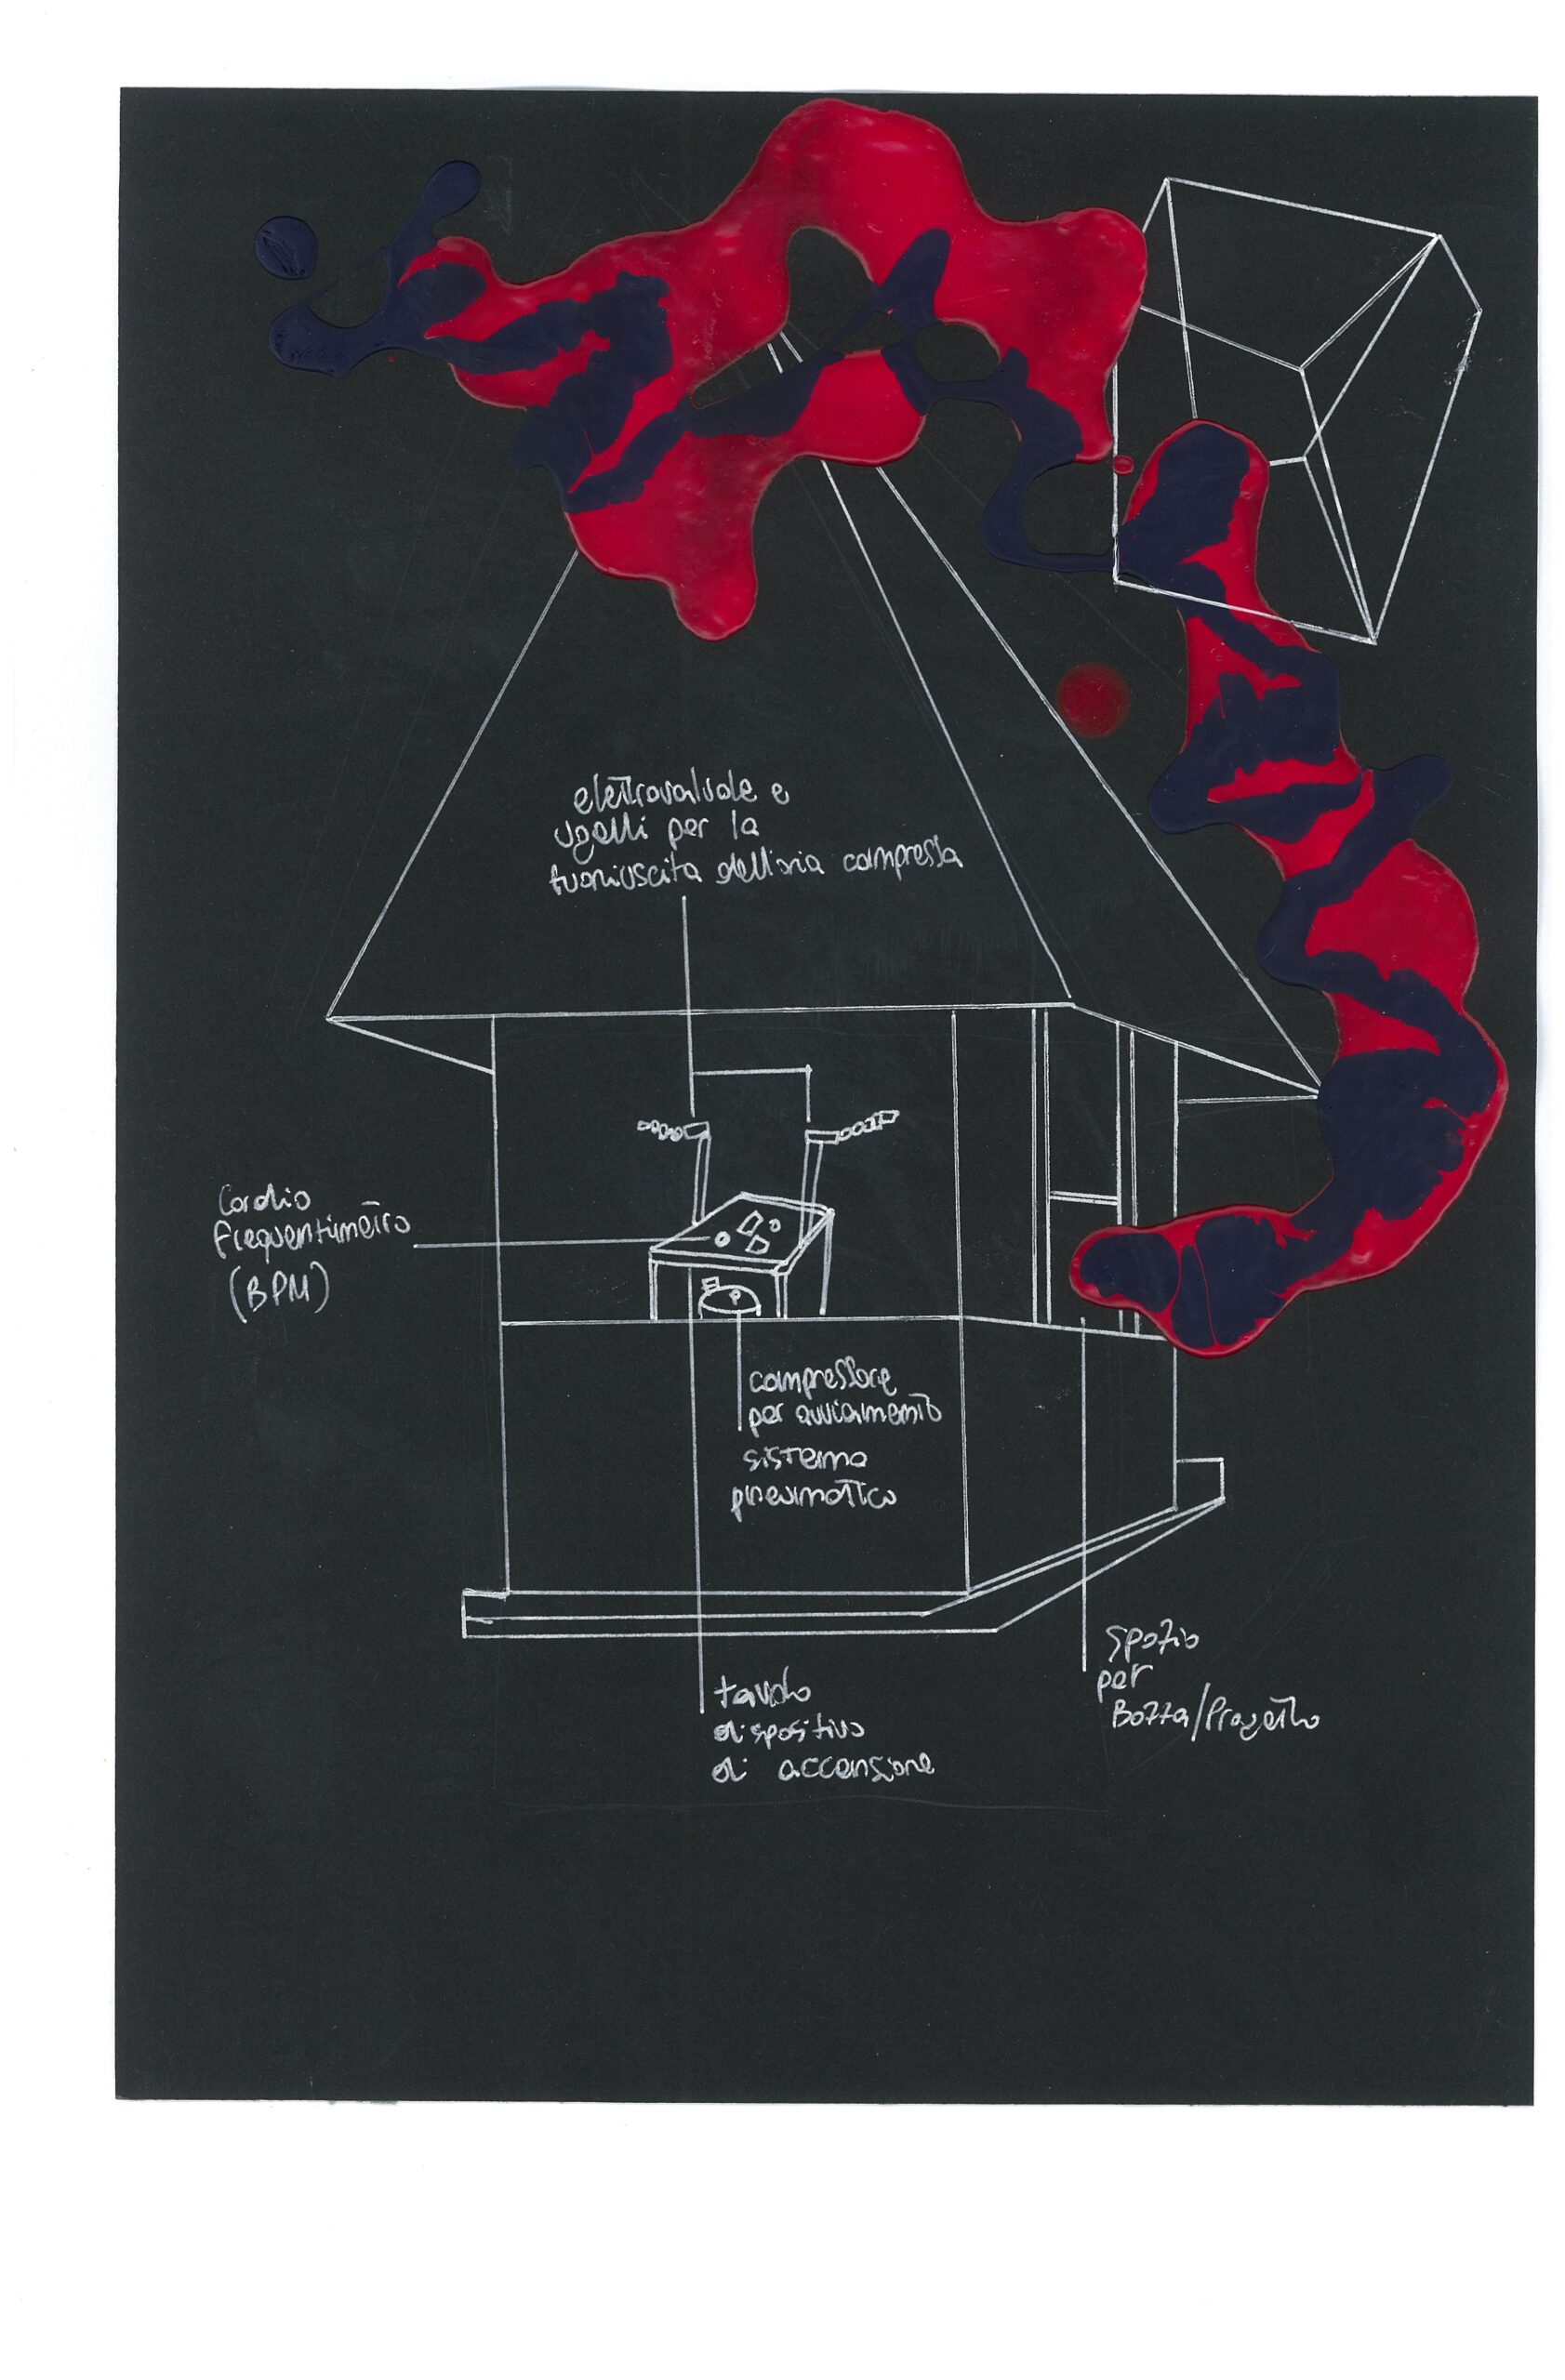 elettrovalvole e
ugelli per la
fuoriuscita dell'aria compressa
Cardio
Frequentimetro
(BPM)
compressore
per avviamento
sistema
pneumatico
tavolo
dispositivo
di accensione
spazio
per
Bozza/Progetto